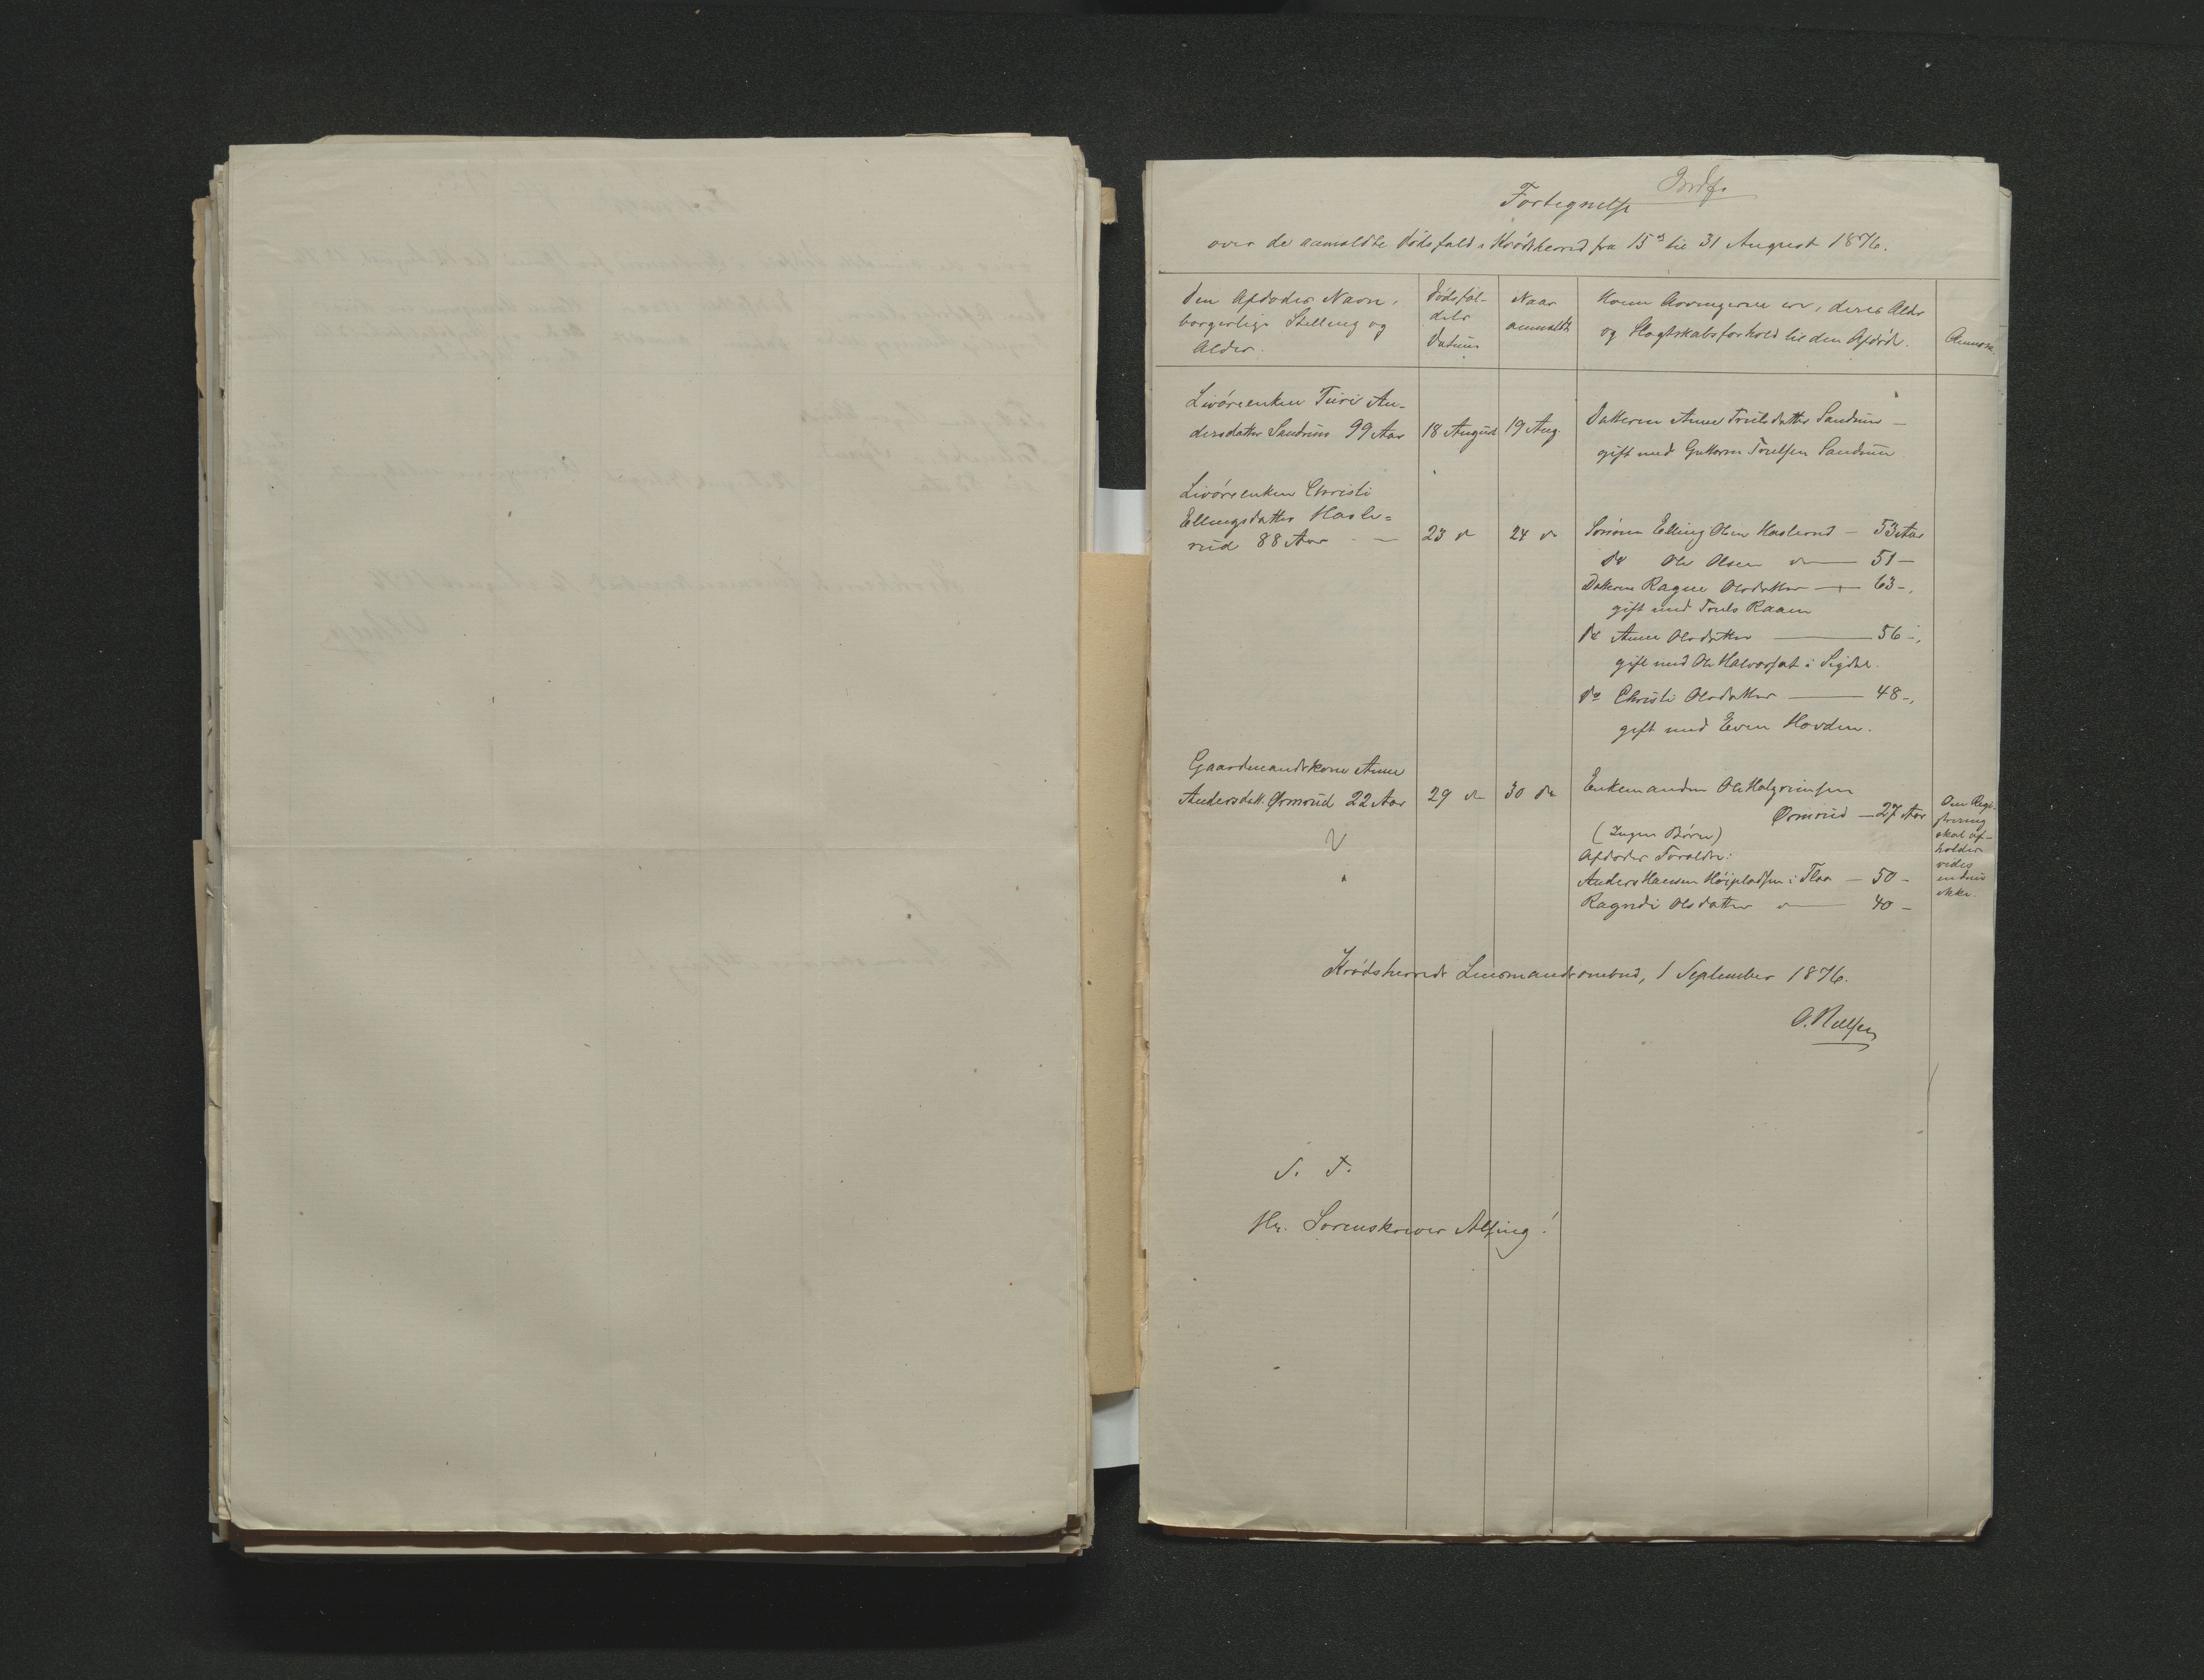 Indf.
Fortegnelse
over de anmeldte Dødsfald i Krødsherred fra 15de til 31 August 1876.
Den Afdødes Navn,
borgerlige Stilling og
Alder.
Dødsfal-
dets
Datum
Naar
anmeldt
Hvem Arvingerne er, deres Alder
og Slægtskabsforhold til den Afdøde.
Anmærk.
Livøreenken Turi An-
dersdatter Sandum 99 Aar
18 August
19 Aug.
Datteren Anne Trulsdatter Sandum -
gift med Guttorm Trulsen Sandum
Livøreenken Christi
Ellingsdatter Hasle=
rud 88 Aar -
23 do
24 do
Sønnen Elling Olsen Haslerud - 53 Aar
do Ole Olsen do - 51 -
Datteren Ragne Olsdatter - 63 -,
gift med Truls Raaen
do Anne Olsdatter - 56 -,
gift med Ole Halvorset i Sigdal.
do Christi Olsdatter - 48 -,
gift med Even Hovden.
Gaardmandskone Anne
Andersdatt. Ormerud 22 Aar
29 do
30 do
Enkemanden Ole Halgrimsen
Ørmerud - 27 Aar
(Ingen Børn)
Afdødes Forældre:
Anders Hansen Høipladsen i Flaa - 50 -
Ragndi Olsdatter do - 40 -
Om Regi-
strering
skal af-
holdes
vides
endnu
ikke.
Krødsherreds Lensmandsombud, 1 September 1876.
O. Nilsen
S. T.
Hr. Sorenskriver Alsing!